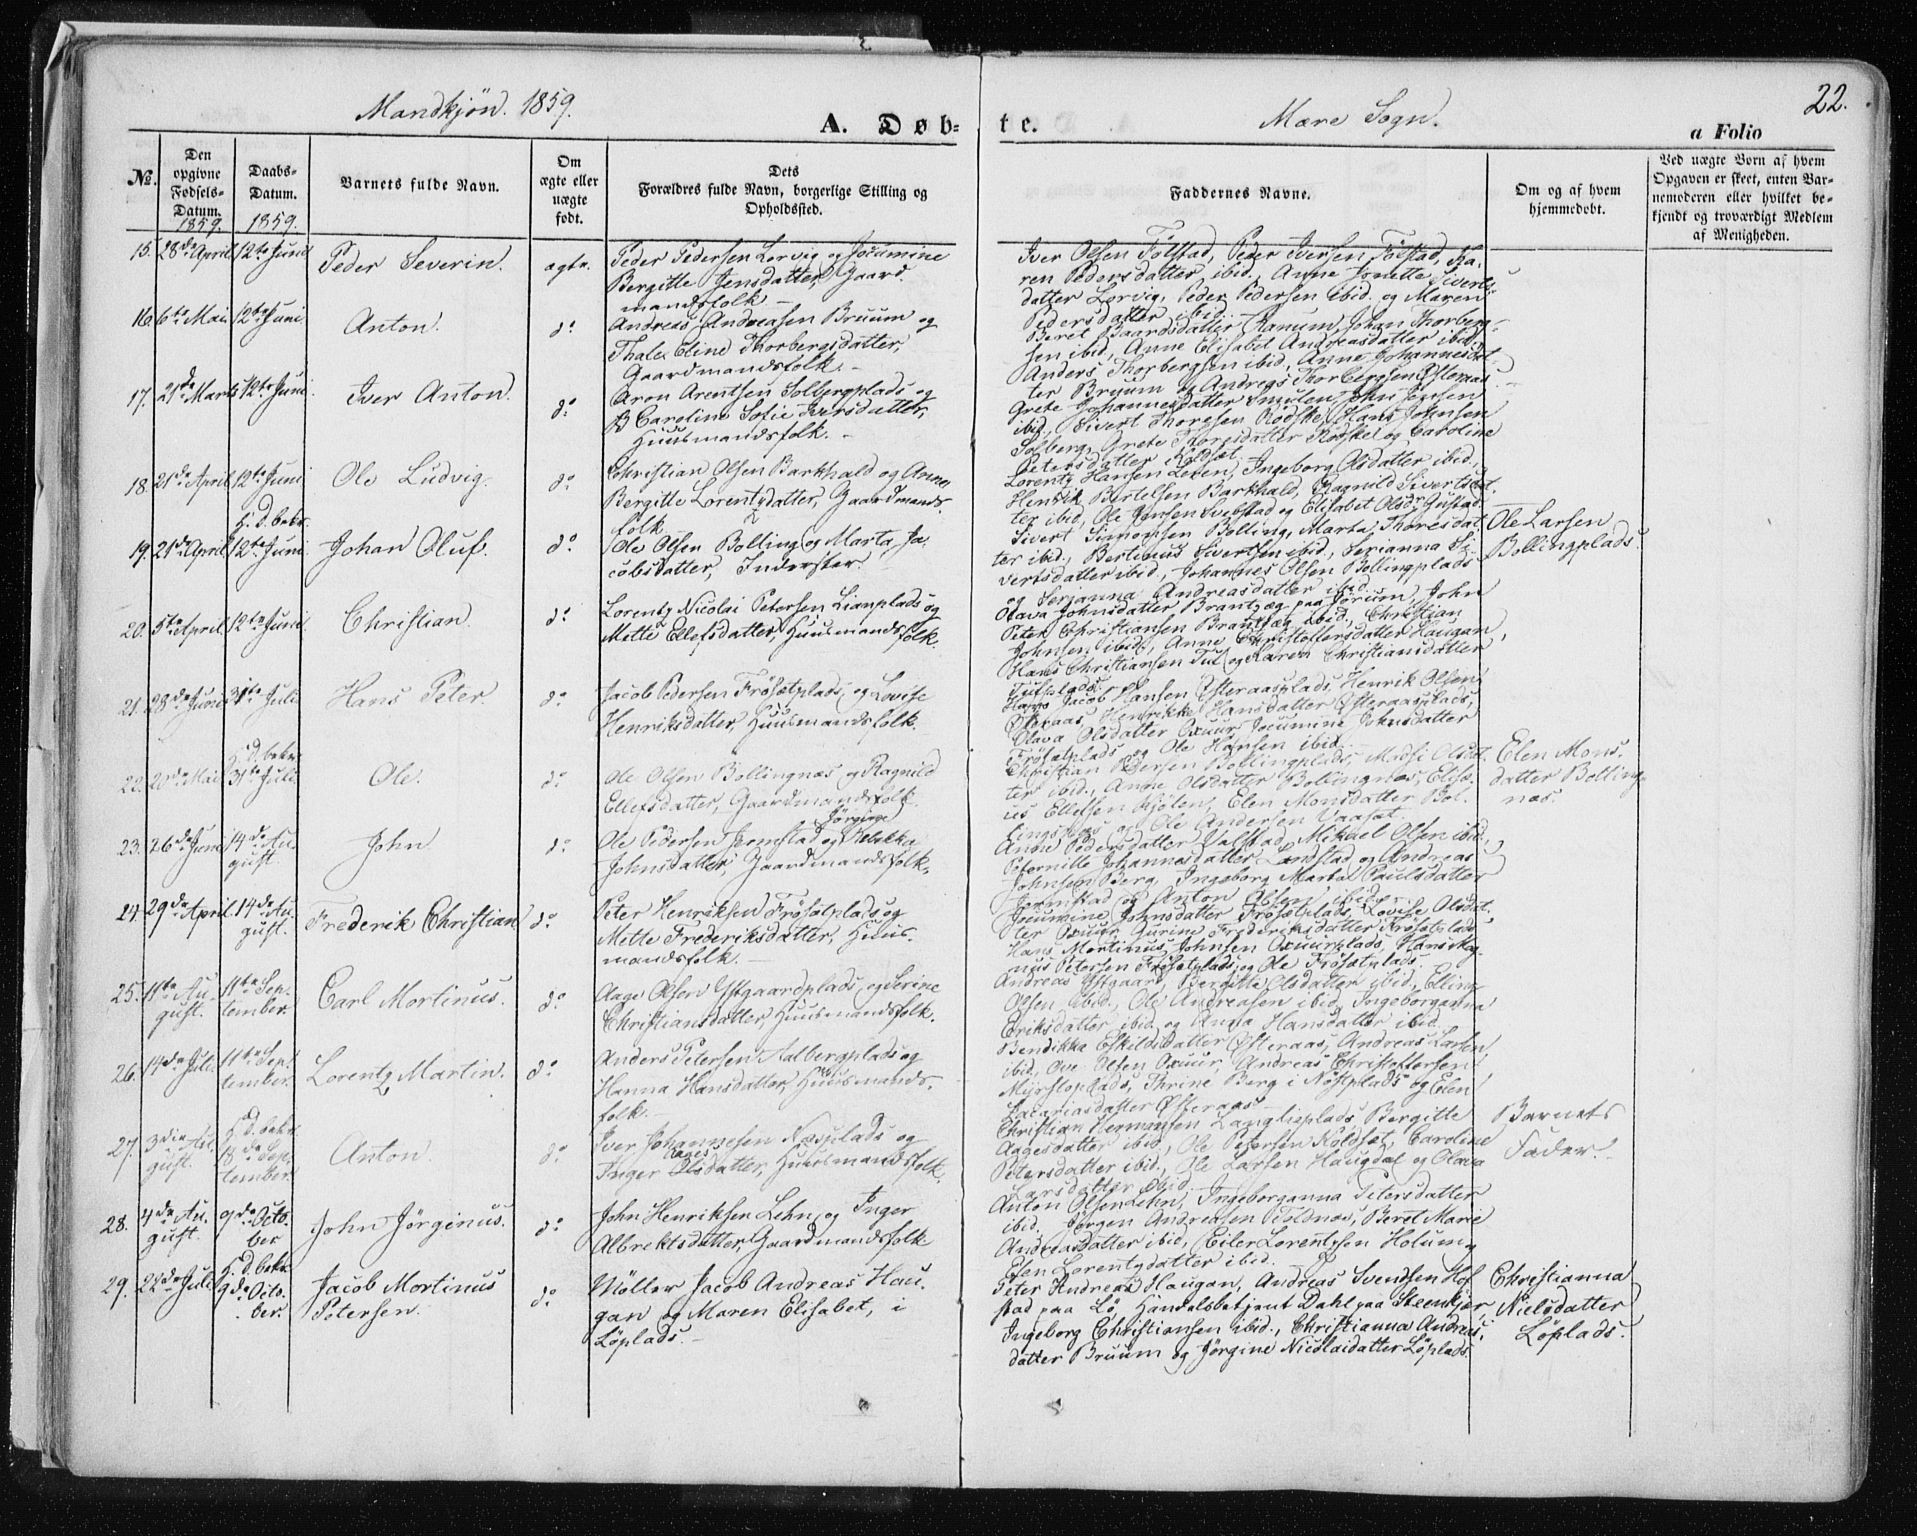 Mandkjøn. 1859.
A. Døb-
te.
Mære Sogn.
22.
a Folio
No.
Den opgivne Fødsels-Datum.
1859.
Daabs-Datum.
1859.
Barnets fulde Navn.
Om ægte eller uægte født.
Dets
Forældres fulde Navn, borgerlige Stilling og
Opholdssted.
Faddernes Navne.
Om og af hvem
hjemmedøbt.
Ved uægte Born af hvem
Opgaven er skeet, enten Bar-
nemoderen eller hvilket be-
kjendt og troværdigt Medlem
af Menigheden.
15. 28de April 12te Juni Peder Severin. ægte.
Peder Pedersen Lorvig og Jocumine
Bergitte Jensdatter, Gaard
mandsfolk –
Iver Olsen Følstad, Peder Iversen Følstad, Ka-
ren Pedersdatter ibid., Anne Jonette Siverts-
datter Lorvig, Peder Pedersen ibid. og Maren
Pedersdatter ibid.
16. 6te Mai 12te Juni Anton. do
Andreas Andreasen Bruum og
Thale Eline Thorbergsdatter,
Gaardmandsfolk. –
Beret Baardsdatter Ranum, Johan Thorberg-
sen ibid., Anne Elisabet Andreasdatter ibid.,
Anders Thorbergsen ibid., Anne Johannesdat-
ter Bruum og Andreas Thorbergsen Østeraas.
17. 21de Marts 12te Juni Iver Anton. do
Aron Arentsen Solbergplads og
Caroline Sofie Iversdatter,
Huusmandsfolk. –
Grete Johannesdatter, John Jensen
ibid., Sivert Thoresen Rødske, Hans Johnsen
Solberg, Grete Thoresdatter Rødske og Caroline
Petersdatter Koldsæt.
18. 21de April 12te Juni Ole Ludvig. do
Christian Olsen Barkhald og Anne
Bergitte Lorentzdatter, Gaardmands-
folk
Lorentz Hansen Leren, Ingeborg Olsdatter ibid.,
Henrik Bertelsen Barkhald, Ragnild Sivertsdat-
ter ibid., Ole Jensen og Elisabet Olsdr
19. 21de April H. D. bekr. 12te Juni Johan Oluf. do
Ole Olsen Bolling og Marta Ja-
cobsdatter, Inderster.
Sivert Simonsen Bolling, Marta Thoresdat-
ter ibid., Bertinus Sivertsen ibid., Serianna Si-
vertsdatter ibid., Johannes Olsen Bollingplads
og Serianna Andreasdatter ibid.
Ole Larsen
Bollingplads.
20. 5te April 12te Juni Christian. do
Lorentz Nicolai Petersen Lianplads og
Mette Ellefsdatter, Huusmandsfolk.
Olava Johnsdatter Brantzæg paa Jørum, John
Peter Christiansen Brantzæg ibid., Christian
Johnsen ibid., Anne Christoffersdatter Haugan,
Hans Christiansen og Karen Christiansdatter
21. 28de Juni 31te Juli Hans Peter. do
Jacob Pedersen Frösætplads og Lovise
Henriksdatter, Huusmandsfolk.
Hans Jacob Hansen Østeraasplads, Henrik Olsen
Østeraas, Henrikke Hansdatter Østeraasplads,
Olava Olsdatter Oxuur, Jocumine Johnsdatter
Frösætplads og Ole Hansen ibid.
22. 20de Mai H. D. bekr. 31te Juli Ole. do
Ole Olsen Bollingnæs og Ragnild
Ellefsdatter, Gaardmandsfolk.
Christian Pedersen Bollingplads, Madsi Olsdat-
ter ibid., Anne Olsdatter Bollingnæs, Elisæ-
us Ellefsen Kjølen, Elen Monsdatter Bol-
lingsnæs og Ole Andersen Vaasæt.
Elen Mons-
datter Bolling-
næs.
23. 26de Juni 14de August John. do
Ole Pedersen Jermstad og Jørgine Rebekka
Johnsdatter, Gaardmandsfolk.
Anne Pedersdatter Valstad, Mikael Olsen ibid.,
Peternille Johannesdatter Landstad og Andreas
Johnsen Berg, Ingeborg Marta Paulsdatter
Jermstad og Anton Olsen ibid.
24. 29de April 14de August. Frederik Christian do.
Peter Henriksen Frösætplads og
Mette Frederiksdatter, Huus-
mandsfolk. –
Jocumine Johnsdatter Frösætplads, Lovise Olsdat-
ter Oxuur, Gurine Frederiksdatter Frösætplads,
Hans Martinus Johnsen Oxuurplads, Hans Mag-
nus Petersen Frösætplads og Ole Frösætplads.
25. 11te August. 11te September. Carl Mortinus. do
Aage Olsen Ystgaardplads og Serine
Christiansdatter, Huusmandsfolk.
Andreas Ystgaard, Bergitte Olsdatter ibid., Elling
Olsen ibid., Ole Andreasen ibid., Ingeborganna
Eriksdatter ibid. og Anna Hansdatter ibid.
26. 14de Juli 11te September. Lorentz Martin. do
Anders Petersen Aalbergplads og
Hanna Hansdatter, Huusmands-
folk. –
Bendikka Eskildsdatter Østeraas, Andreas Larsen
ibid., Ove Olsen Oxuur, Andreas Christoffersen
Myrstoplads, Thrine Berg i Nöstplads og Elen
Zacariasdatter Østeraas
27. 3die August. H. D. bekr. 18de September. Anton. do
Iver Johannesen Næsplads og
Inger Aagesdatter, Huusmandsfolk.
Christian Hermansen Langlieplads, Bergitte
Aagesdatter ibid., Ole Petersen Koldsæt, Caroline
Petersdatter ibid., Ole Larsen Haugdal og Olava
Larsdatter ibid.
Barnets
Fader.
28. 4de August. 9de October John Jörginus. do
John Henriksen Lehn og Inger
Albrektsdatter, Gaardmandsfolk
Anton Olsen Lehn, Ingeborganna Petersdatter
ibid., Jørgen Andreasen Toldnæs, Beret Marie
Andreasdatter ibid., Eiler Lorentzsen Holum og
Elen Lorentzdatter ibid.
29. 22de Juli H. D. bekr. 9de October. Jacob Mortinus
Petersen. do
Möller Jacob Andreas Hau-
gan og Maren Elisabet, i
Löplads. –
Peter Andreas Haugan, Andreas Svendsen Hof
stad paa Lö, Handelsbetjent Dahl paa Steenkjær,
Ingeborg Christiansen ibid., Christianna Andreas-
datter Bruum og Jörgine Nicolaidatter Löplads.
Christianna
Nielsdatter
Löplads.